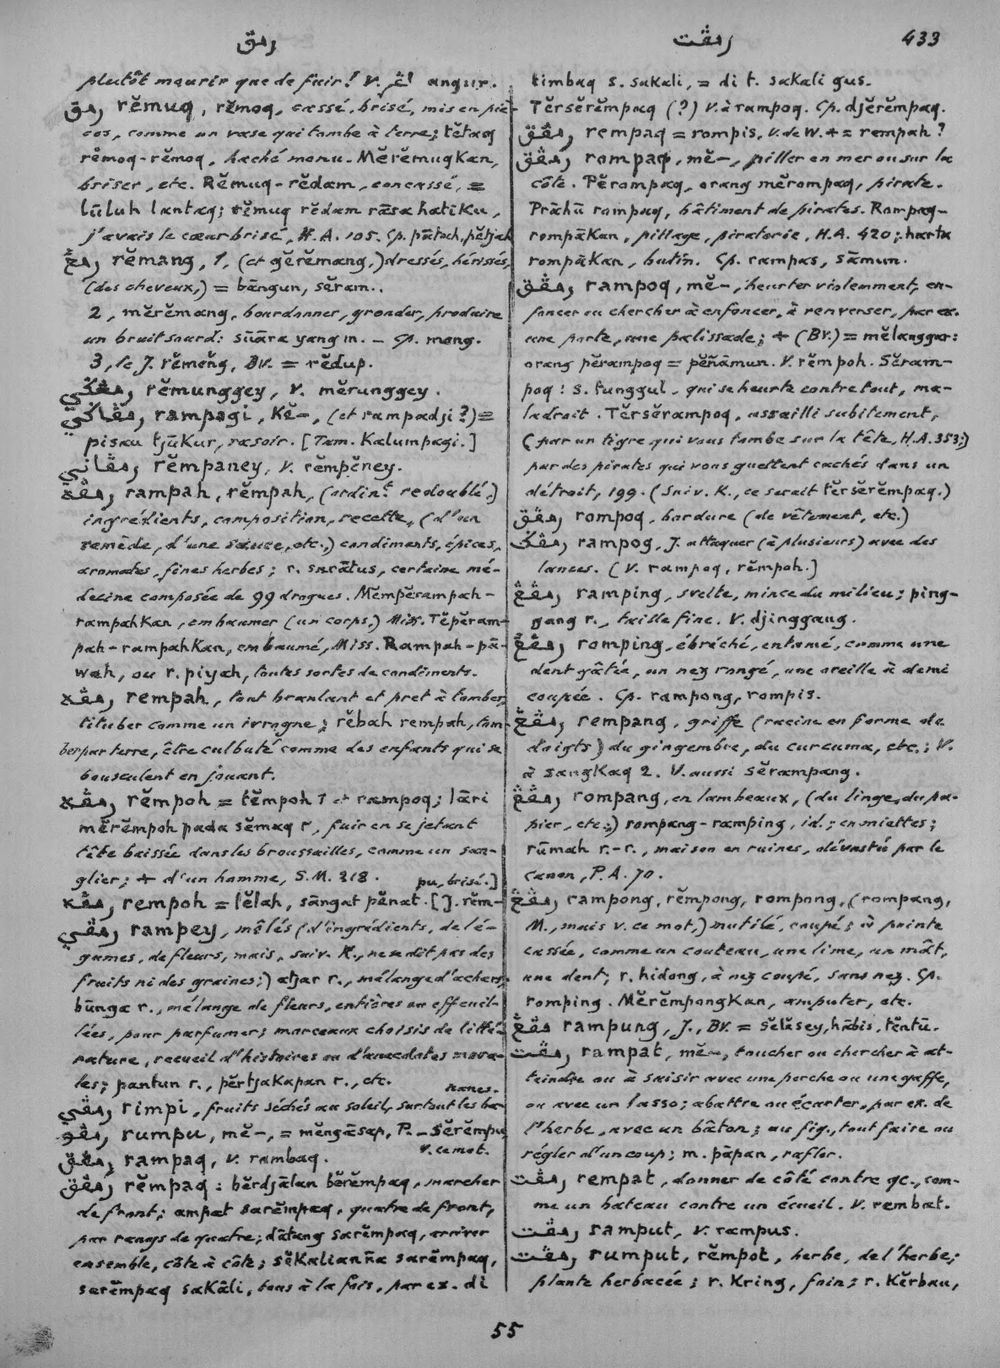 رمق
رمڤت 433
plutôt mourir que de fuir! V. اڠر angur.
رمق rĕmuq, rĕmoq, cassé, brisé, mis en piè-
ces, comme un vase qui tombe à terre; tĕtaq
rĕmoq-rĕmoq, haché menu. Mĕrĕmuqkan,
briser, etc. Rĕmuq-rĕdam, concassé, =
lūluh lantaq; rĕmuq rĕdam rāsa hatiku,
j'avais le cœur brisé, H.A. 105. Cp. pātah, pĕtjah
رمڠ rĕmang, 1, (et gĕrĕmang,) dressés, hérissés,
(des cheveux,) = bāngun, sĕram..
2, mĕrĕmang, bourdonner, gronder, produire
un bruit sourd: sūāra yang m. – Cp. mang.
3, le J. rĕmĕng, BV. = rĕdup.
رمڠݢي rĕmunggey, V. mĕrunggey.
رمڤاݢي rampagi, kĕ–, (et rampadji?) =
pisau tjūkur, rasoir. [Tam. Kalumpagi.]
رمڤاني rĕmpaney, V. rĕmpĕney.
رمڤه rampah, rĕmpah, (ordint. redoublé,)
ingrédients, composition, recette, (d'un
remède, d'une sauce, etc.) condiments, épices,
aromates, fines herbes; r. sarātus, certaine mé-
decine composée de 99 drogues. Mĕmpĕrampah-
rampahkan, embaumer (un corps,) Miss. Tĕpĕram-
pah-rampahkan, embaumé, Miss. Rampah-pā-
wah, ou r. piyah, toutes sortes de condiments.
رمڤه rempah, tout branlant et prêt à tomber,
tituber comme un ivrogne; rĕbah rempah, tom-
ber par terre, être culbuté comme des enfants qui se
bousculent en jouant.
رمڤه rĕmpoh = tĕmpoh 1 et rampoq; lāri
mĕrĕmpoh pada sĕmaq r, fuir en se jetant
tête baissée dans les broussailles, comme un san-
glier; + d'un homme, S.M. 218. pu, brisé.]
رمڤه rempoh = lĕlah, sāngat pĕnat. [J. rĕm-
رمڤي rampey, mêlés (d'ingrédients, de lé-
gumes, de fleurs, mais, suiv. K., ne se dit pas des
fruits ni des graines;) atjar r., mélange d'achars,
būnga r., mélange de fleurs, entières ou effeuil-
lées, pour parfumer; morceaux choisis de litté-
rature, recueil d'histoires ou d'anecdotes mora-
les; pantun r., pĕrtjakapan r., etc. nanes.
رمڤي rimpi, fruits séchés au soleil, surtout les ba-
رمڤو rumpu, mĕ–, = mĕngāsap, P. – Sĕrĕmpu
رمڤق rampaq, V. rambaq. V. ce mot.
رمڤق rĕmpaq: bĕrdjālan bĕrĕmpaq, marcher
de front; ampat sarĕmpaq, quatre de front,
par rangs de quatre; dātang sarĕmpaq, arriver
ensemble, côte à côte; sĕkalianña sarĕmpaq,
sarĕmpaq sakāli, tous à la fois, par ex. di
timbaq s. sakali, = di t. sakali gus.
Tĕrsĕrĕmpaq (?) V. à rampoq. Cp. djĕrĕmpaq.
رمڤق rempaq = rompis, V. de W. + = rempah?
رمڤق rompaq, mĕ–, piller en mer ou sur la
côte. Pĕrompaq, orang mĕrompaq, pirate.
Prāhū rompaq, bâtiment de pirates. Rompaq-
rompākan, pillage, piraterie, H.A. 420; harta
rompākan, butin. Cp. rampas, sāmun.
رمڤق rampoq, mĕ–, heurter violemment, en-
foncer ou chercher à enfoncer, à renverser, par ex.
une porte, une palissade; + (BV.) = mĕlanggar:
orang pĕrampoq = pĕñāmun. V. rĕmpoh. Sĕram-
poq: s. tunggul, qui se heurte contre tout, ma-
ladroit. Tĕrsĕrampoq, assailli subitement,
(par un tigre qui vous tombe sur la tête, H.A. 353;)
par des pirates qui vous guettent cachés dans un
détroit, 199. (Suiv. K., ce serait tĕrsĕrĕmpaq.)
رمڤق rompoq, bordure (de vêtement, etc.)
رمڤݢ rampog, J. attaquer (à plusieurs) avec des
lances. (V. rampoq, rĕmpoh.]
رمڤڠ ramping, svelte, mince du milieu; ping-
gang r., taille fine. V. djinggang.
رمڤڠ romping, ébréché, entamé, comme une
dent gâtée, un nez rongé, une oreille à demi
coupée. Cp. rampong, rompis.
رمڤڠ rempang, griffe (racine en forme de
doigts) du gingembre, du curcuma, etc.; V.
à sangkaq 2. V. aussi sĕrampang.
رمڤڠ rompang, en lambeaux, (du linge, du pa-
pier, etc;) rompang-ramping, id.; en miettes;
rūmah r.-r., maison en ruines, dévastée par le
canon, P.A. 70.
رمڤڠ rampong, rĕmpong, rompong, (rompang,
M., mais v. ce mot,) mutilé, coupé; à pointe
cassée, comme un couteau, une lime, un mât,
une dent; r. hidong, à nez coupé, sans nez. Cp.
romping. Mĕrĕmpongkan, amputer, etc.
رمڤڠ rampung, J., BV. = sĕlăsey, hābis, tĕntū.
رمڤت rampat, mĕ–, toucher ou chercher à at-
teindre ou à saisir avec une perche ou une gaffe,
ou avec un lasso; abattre ou écarter, par ex. de
l'herbe, avec un bâton; au fig., tout faire ou
régler d'un coup; m. pāpan, rafler.
رمڤت rempat, donner de côté contre qc., com-
me un bateau contre un écueil. V. rembat.
رمڤت samput, V. rampus.
رمڤت rumput, rĕmpot, herbe, de l'herbe;
plante herbacée; r. kring, foin; r. Kĕrbau,
55